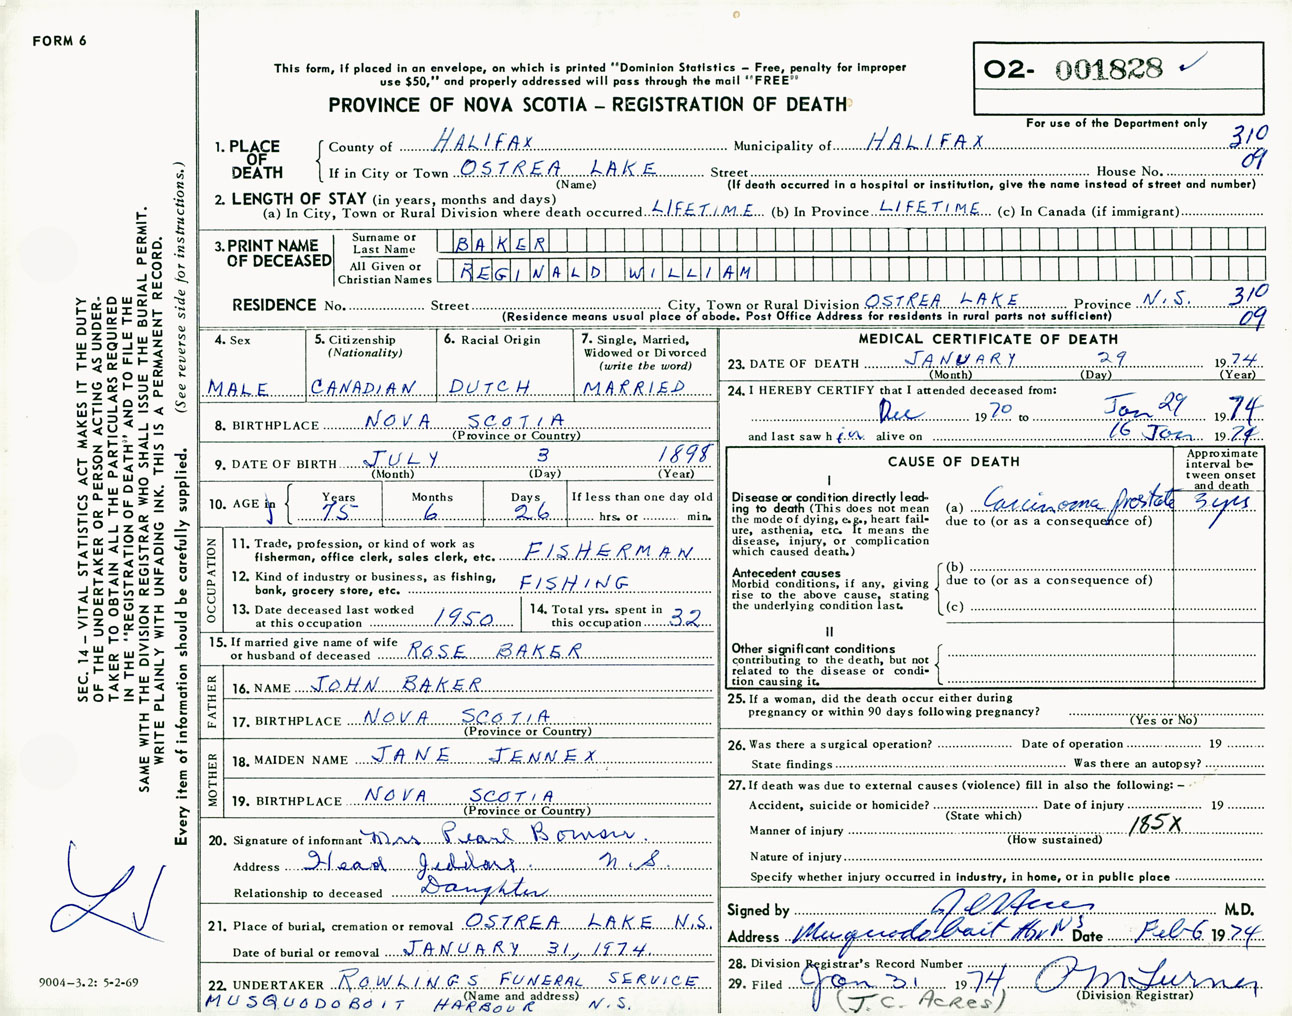 FORM 6
This form, if placed in an envelope, on which is printed "Dominion Statistics – Free, penalty for improper
use $50," and properly addressed will pass through the mail "FREE"
PROVINCE OF NOVA SCOTIA – REGISTRATION OF DEATH
O2- 001828 ✓
For use of the Department only
1. PLACE OF DEATH
County of HALIFAX Municipality of HALIFAX 310
If in City or Town OSTREA LAKE Street House No. 09
(Name) (If death occurred in a hospital or institution, give the name instead of street and number)
2. LENGTH OF STAY (in years, months and days)
(a) In City, Town or Rural Division where death occurred LIFETIME (b) In Province LIFETIME (c) In Canada (if immigrant)
3. PRINT NAME OF DECEASED
Surname or Last Name BAKER
All Given or Christian Names REGINALD WILLIAM
RESIDENCE No. Street City, Town or Rural Division OSTREA LAKE Province N.S. 310
(Residence means usual place of abode. Post Office Address for residents in rural parts not sufficient) 09
4. Sex
MALE
5. Citizenship
(Nationality)
CANADIAN
6. Racial Origin
DUTCH
7. Single, Married,
Widowed or Divorced
(write the word)
MARRIED
8. BIRTHPLACE NOVA SCOTIA
(Province or Country)
9. DATE OF BIRTH JULY 3 1898
(Month) (Day) (Year)
10. AGE
Years Months Days If less than one day old
75 6 26 hrs. or min.
OCCUPATION
11. Trade, profession, or kind of work as
fisherman, office clerk, sales clerk, etc. FISHERMAN
12. Kind of industry or business, as fishing,
bank, grocery store, etc. FISHING
13. Date deceased last worked
at this occupation 1950
14. Total yrs. spent in
this occupation 32
15. If married give name of wife
or husband of deceased ROSE BAKER
FATHER
16. NAME JOHN BAKER
17. BIRTHPLACE NOVA SCOTIA
(Province or Country)
MOTHER
18. MAIDEN NAME JANE JENNEX
19. BIRTHPLACE NOVA SCOTIA
(Province or Country)
20. Signature of informant Mrs Pearl Bowser
Address Head Jeddore N.S.
Relationship to deceased Daughter
21. Place of burial, cremation or removal OSTREA LAKE N.S.
Date of burial or removal JANUARY 31, 1974.
22. UNDERTAKER ROWLINGS FUNERAL SERVICE
(Name and address)
MUSQUODOBOIT HARBOUR N.S.
MEDICAL CERTIFICATE OF DEATH
23. DATE OF DEATH JANUARY 29 1974
(Month) (Day) (Year)
24. I HEREBY CERTIFY that I attended deceased from:
Dec 1970 to Jan 29 1974
and last saw him alive on 16 Jan 1974
CAUSE OF DEATH
Approximate
interval be-
tween onset
and death
I
Disease or condition directly lead-
ing to death (This does not mean
the mode of dying, e.g., heart fail-
ure, asthenia, etc. It means the
disease, injury, or complication
which caused death.)
(a) Carcinoma prostate 3 yrs
due to (or as a consequence of)
Antecedent causes
Morbid conditions, if any, giving
rise to the above cause, stating
the underlying condition last.
(b)
due to (or as a consequence of)
(c)
II
Other significant conditions
contributing to the death, but not
related to the disease or condi-
tion causing it.
25. If a woman, did the death occur either during
pregnancy or within 90 days following pregnancy?
(Yes or No)
26. Was there a surgical operation? Date of operation 19
State findings Was there an autopsy?
27. If death was due to external causes (violence) fill in also the following: –
Accident, suicide or homicide? Date of injury 19
(State which)
Manner of injury 185X
(How sustained)
Nature of injury
Specify whether injury occurred in industry, in home, or in public place
Signed by J C Acres M.D.
Address Musquodoboit Hbr NS Date Feb 6 1974
28. Division Registrar's Record Number
29. Filed Jan 31 1974 P M Turner
(J.C. ACRES) (Division Registrar)
SEC. 14 – VITAL STATISTICS ACT MAKES IT THE DUTY
OF THE UNDERTAKER OR PERSON ACTING AS UNDER-
TAKER TO OBTAIN ALL THE PARTICULARS REQUIRED
IN THE "REGISTRATION OF DEATH" AND TO FILE THE
SAME WITH THE DIVISION REGISTRAR WHO SHALL ISSUE THE BURIAL PERMIT.
WRITE PLAINLY WITH UNFADING INK. THIS IS A PERMANENT RECORD.
(See reverse side for instructions.)
Every item of information should be carefully supplied.
9004-3.2: 5-2-69